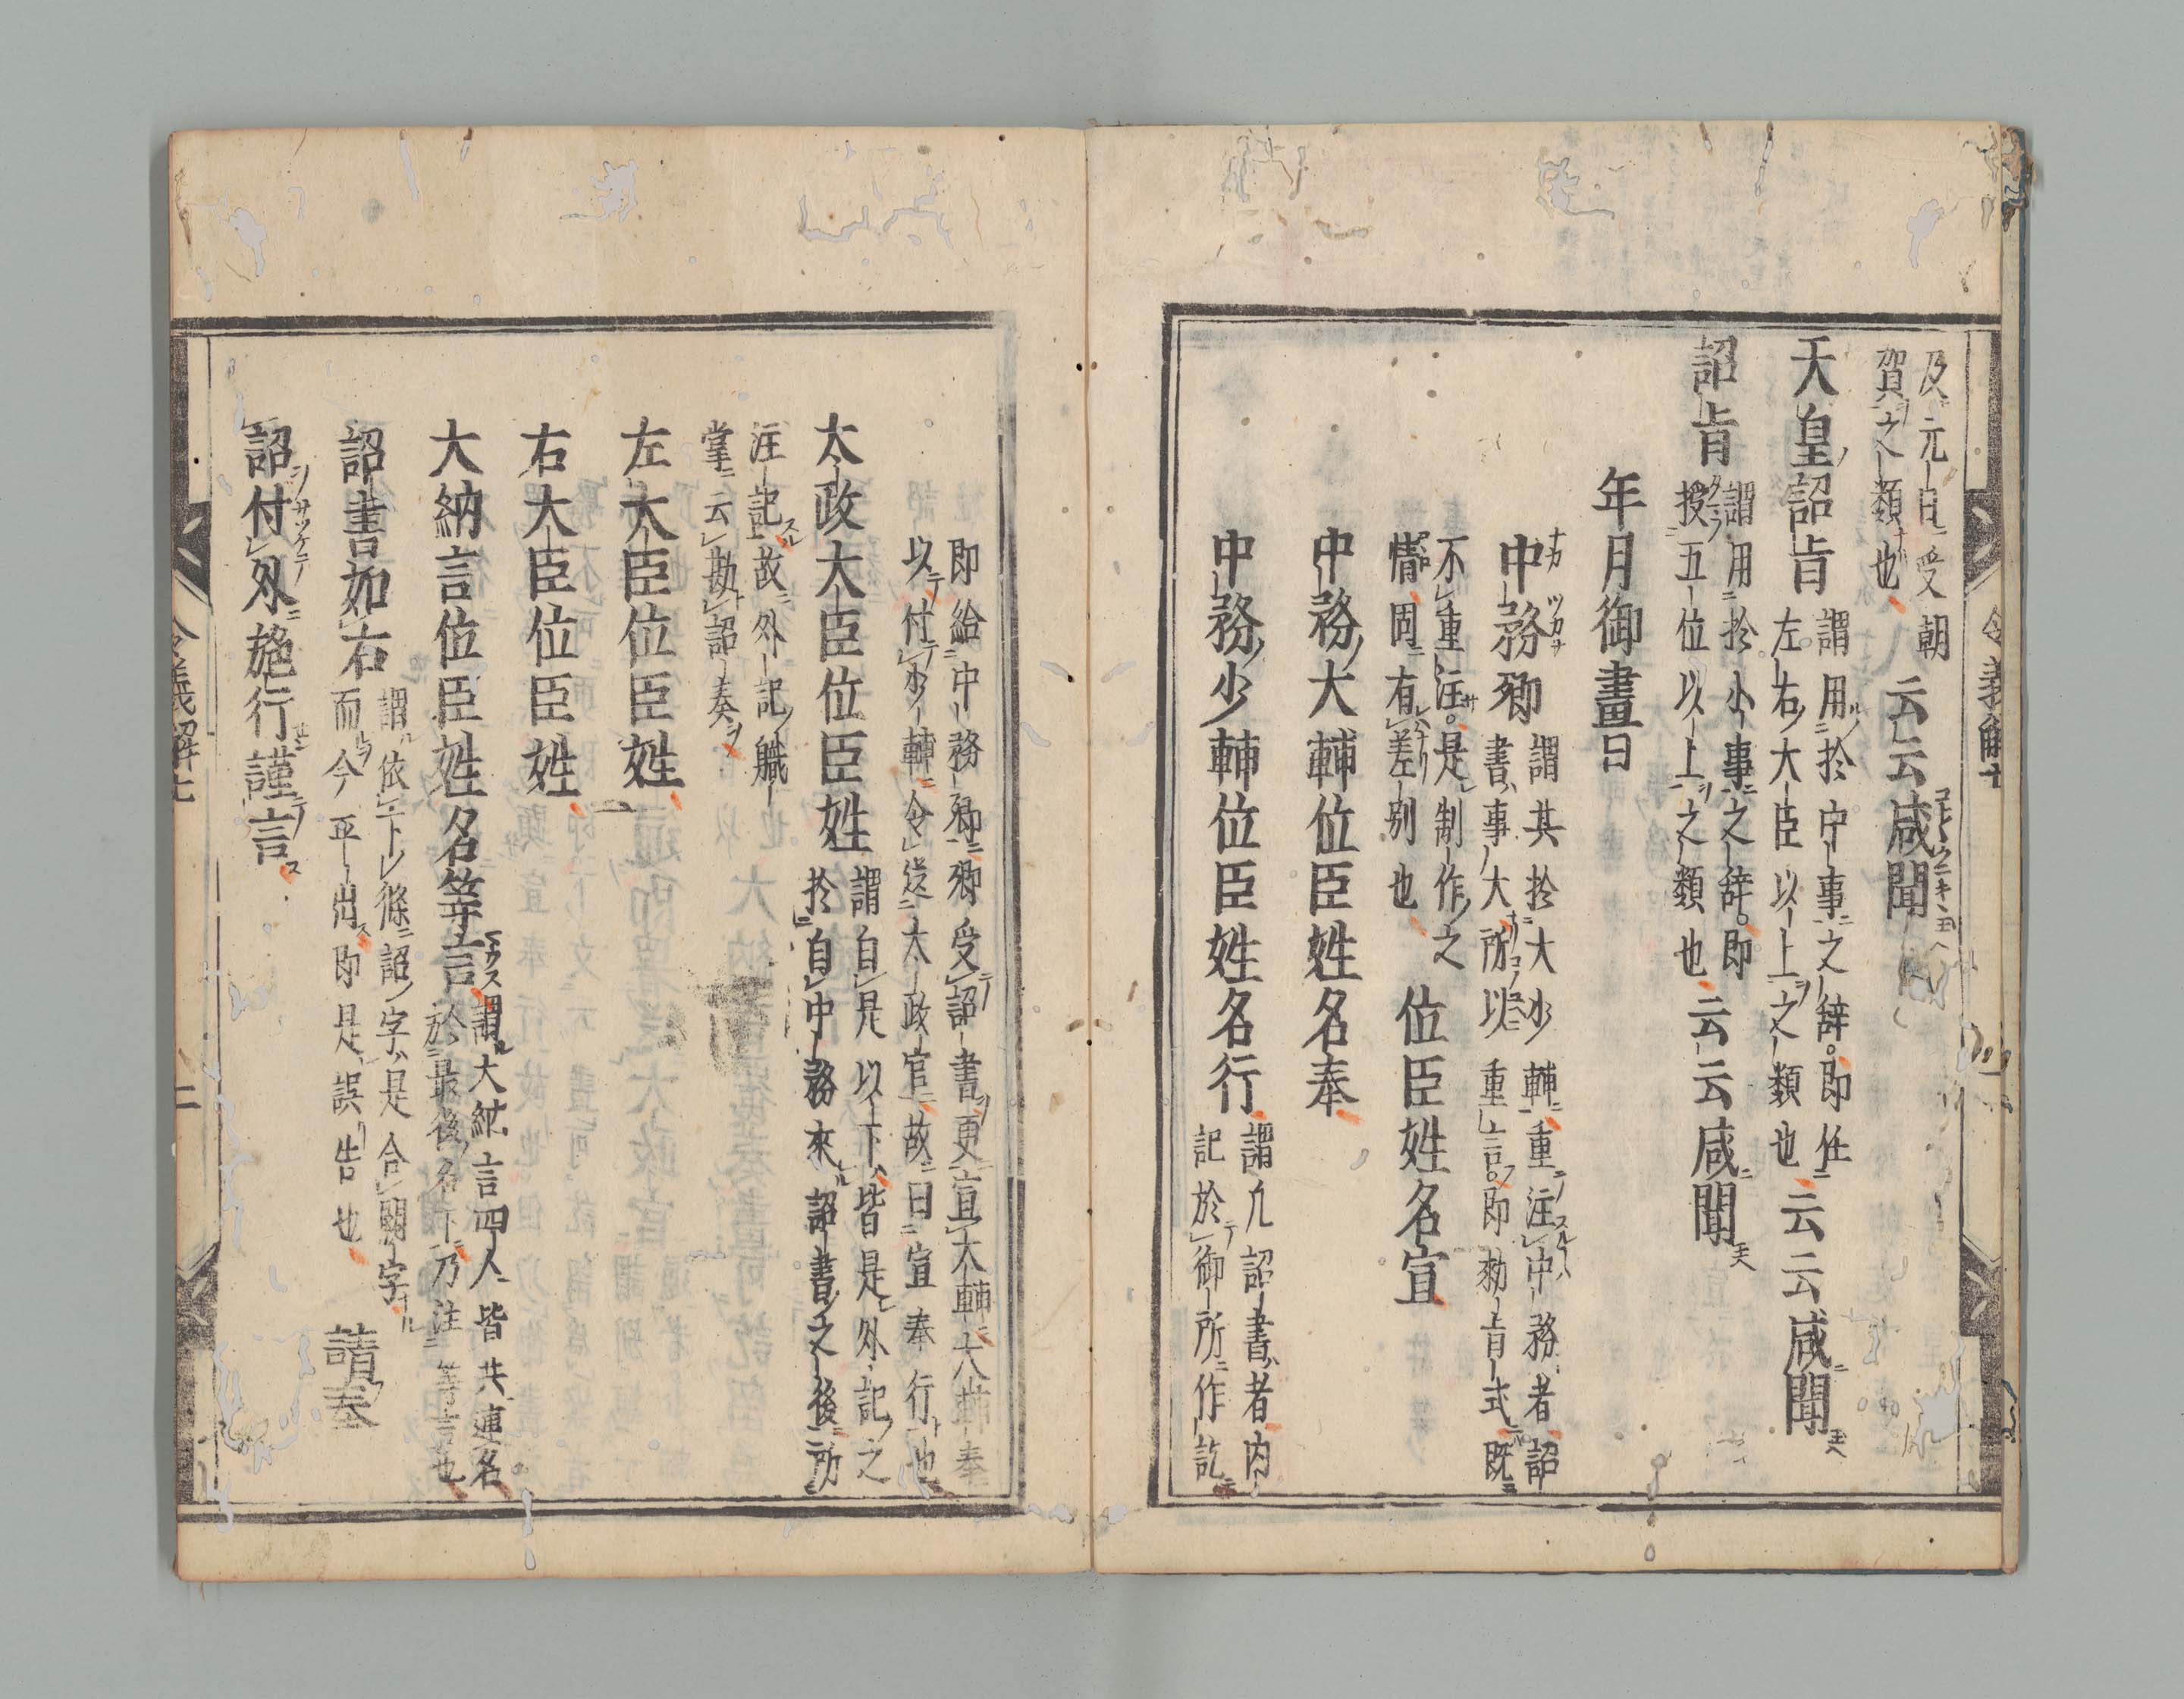 及元日受朝
賀之類也
云云咸聞
天皇詔旨
謂用於中事之辞即任
左右大臣以上之類也
云云咸聞
詔旨
謂用於小事之辞即
授五位以上之類也
云云咸聞
年月御畫日
中務卿
謂其於大少輔重注中務者詔
書事大所以重言即勅旨式既
不重注是制作之
情固有差別也
位臣姓名宣
中務大輔位臣姓名奉
中務少輔位臣姓名行
謂凡詔書者内
記於御所作訖
即給中務卿卿受詔書更宣大輔大輔奉
以付少輔令送太政官故曰宣奉行也
太政大臣位臣姓
謂自是以下皆是外記之
於自中務來詔書之後所
注記故外記職
掌云勘詔奏
左大臣位臣姓
右大臣位臣姓
大納言位臣姓名等言
謂大納言四人皆共連名
於最後名下乃注等言也
詔書如右
謂依下條詔字是合闕字
而今平出即是誤告也
請奉
詔付外施行謹言
令義解七
二